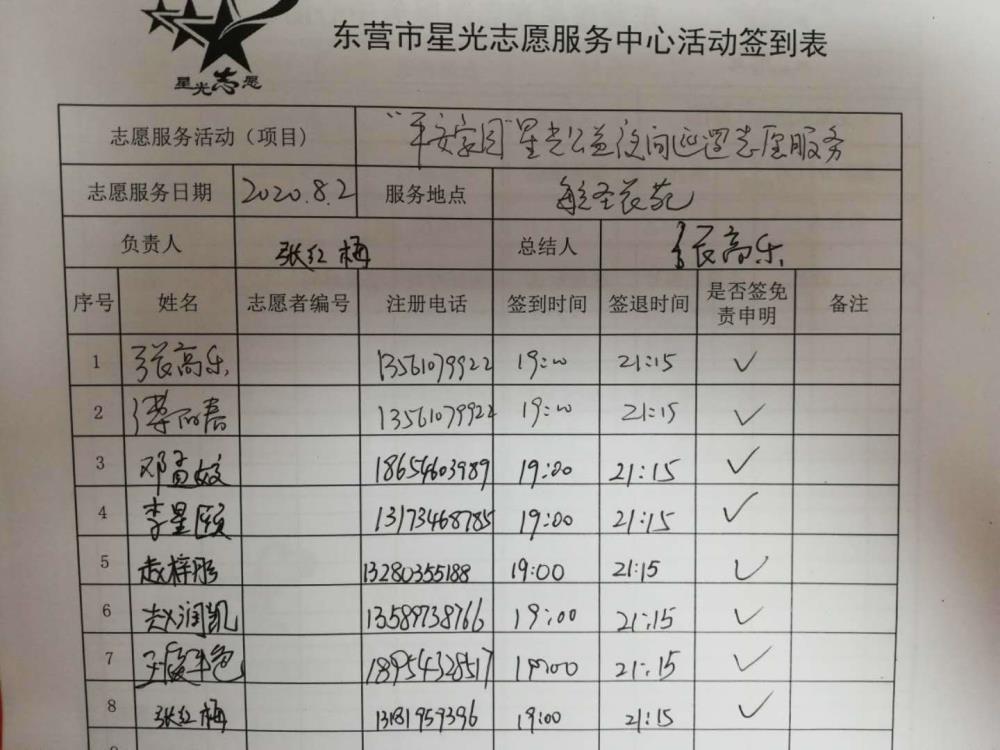 东营市星光志愿服务中心活动签到表
星光志愿
志愿服务活动（项目） “平安家园”星光公益夜间巡逻志愿服务
志愿服务日期 2020.8.2 服务地点
负责人 张红梅 总结人 张高乐
序号 姓名 志愿者编号 注册电话 签到时间 签退时间 是否签免责申明 备注
1 张高乐 13561079922 19:00 21:15 ✓
2 13561079922 19:00 21:15 ✓
3 邓孟姣 18654603989 19:00 21:15 ✓
4 李星颐 13173468785 19:00 21:15 ✓
5 赵梓彤 13280355188 19:00 21:15 ✓
6 赵润凯 13589738766 19:00 21:15 ✓
7 18954328517 19:00 21:15 ✓
8 张红梅 13181959396 19:00 21:15 ✓